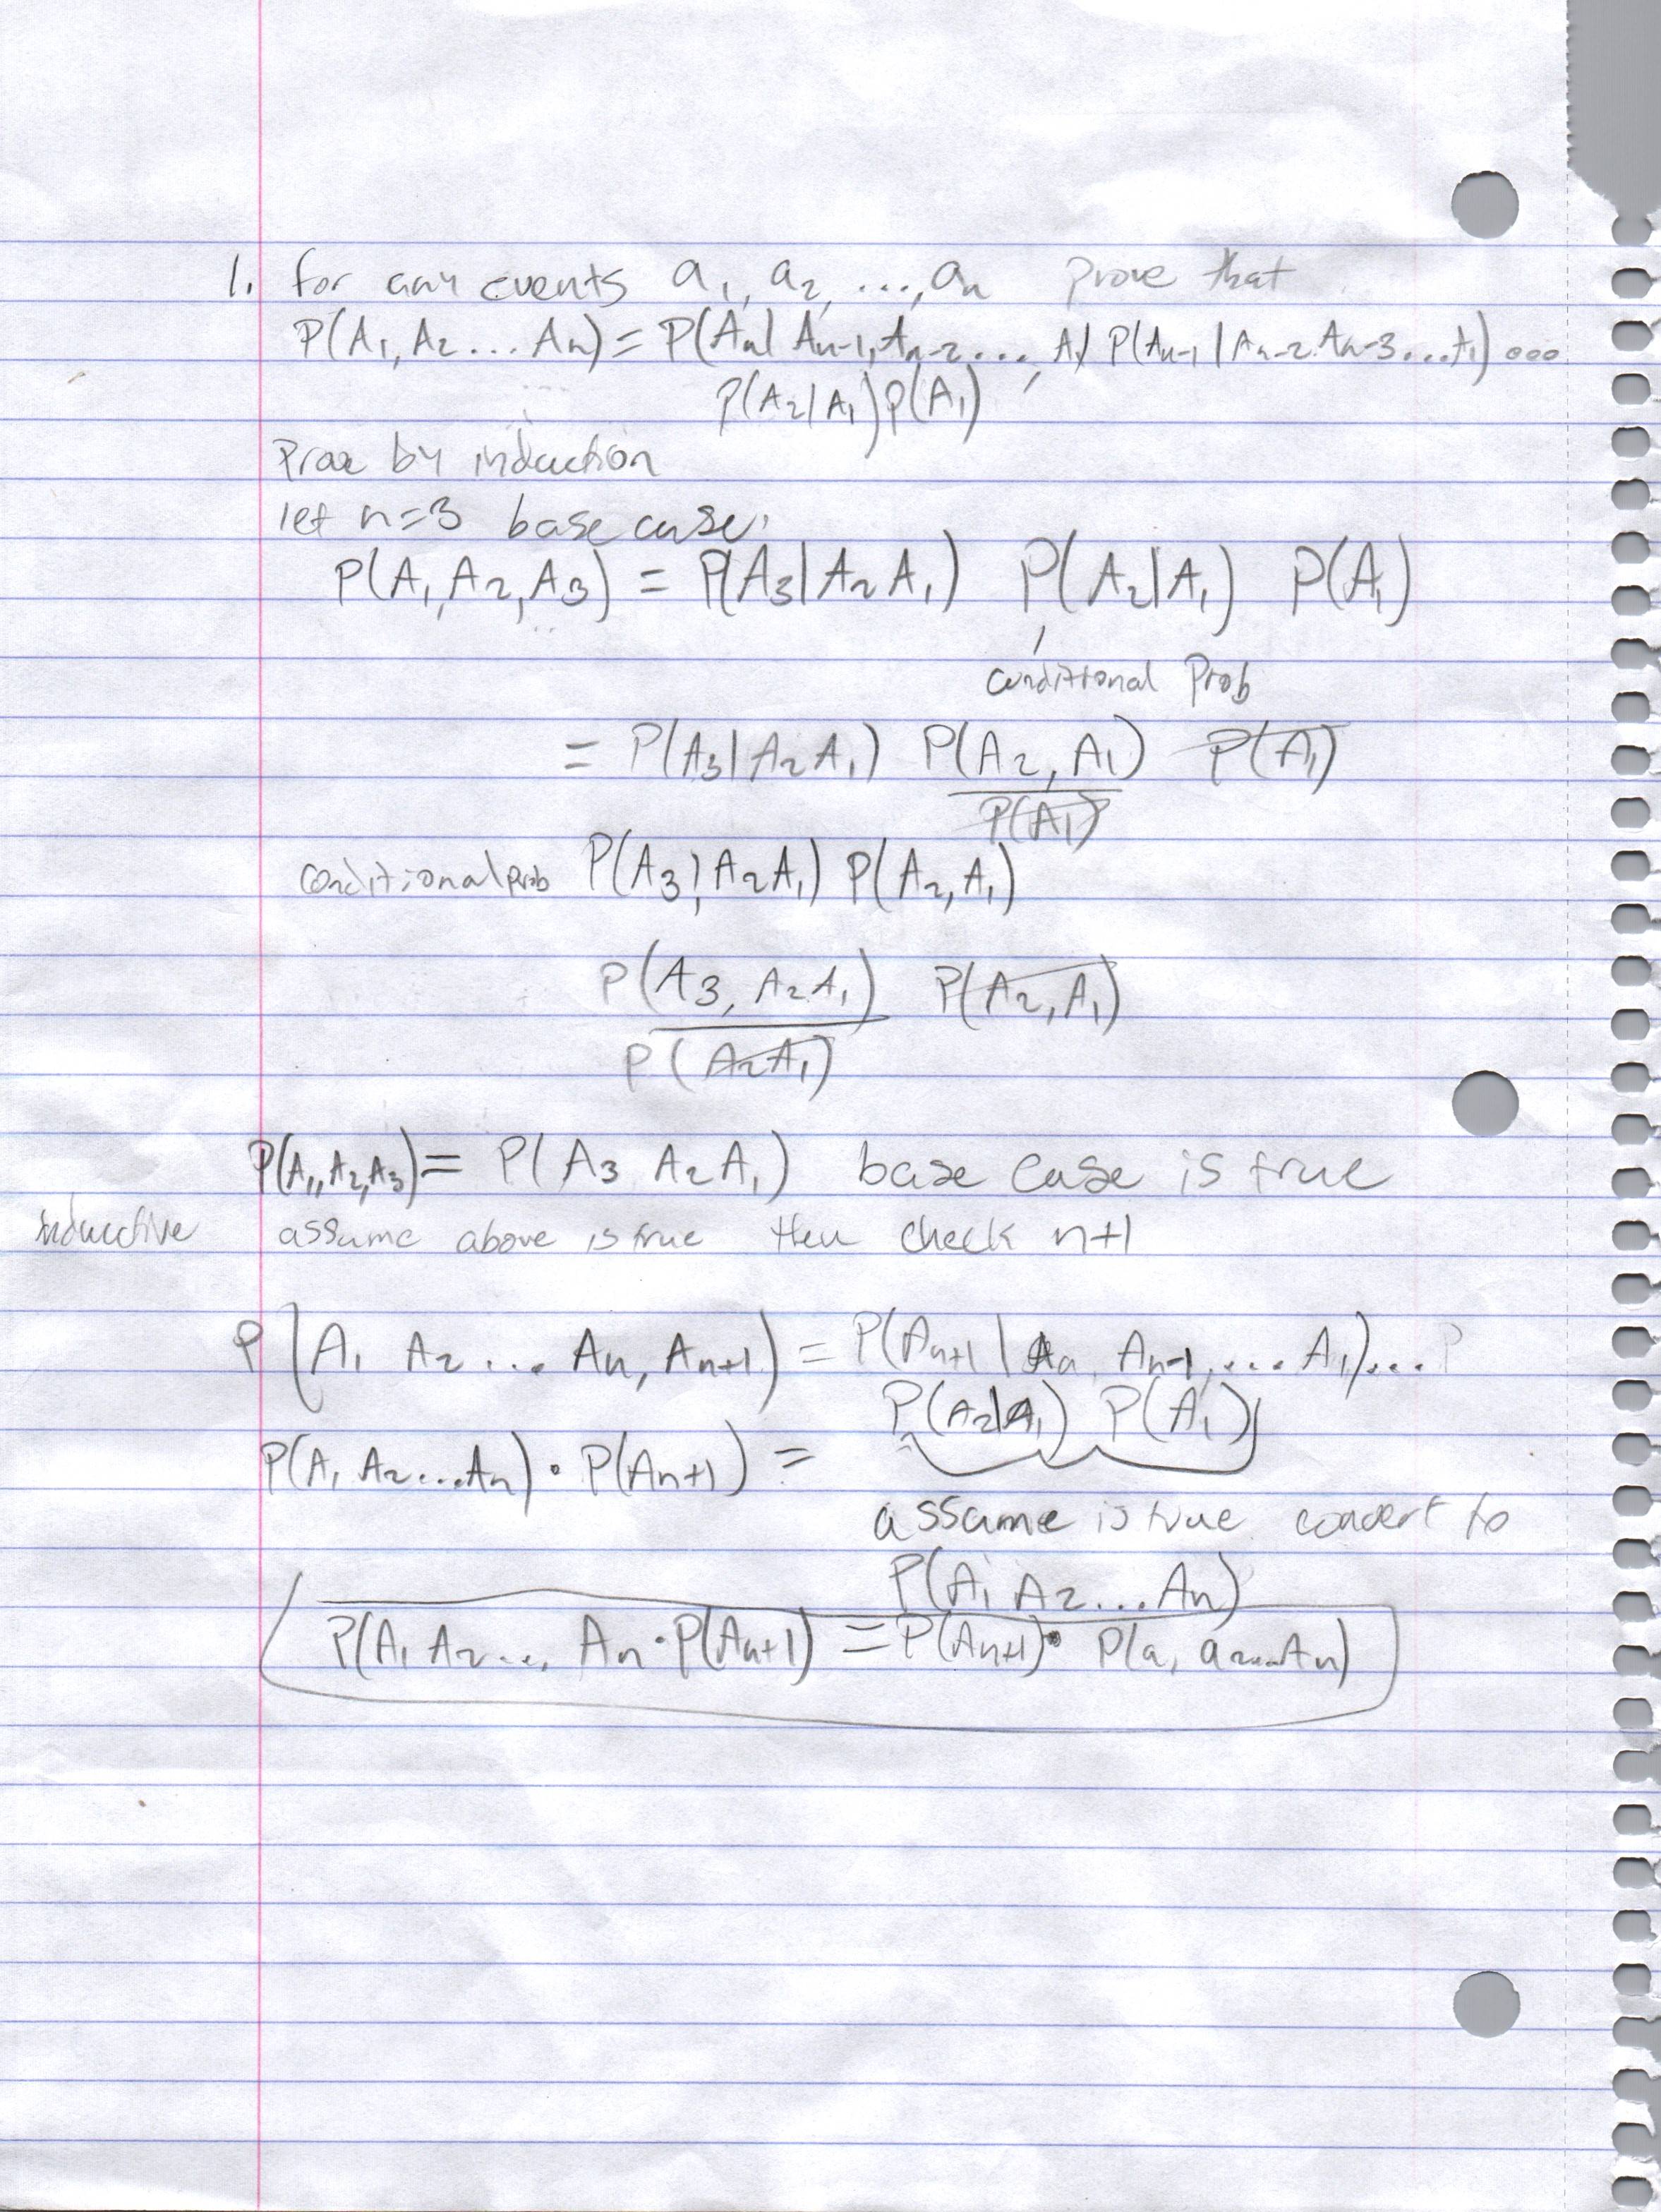 1. for any events a₁, a₂, ..., aₙ prove that
P(A₁, A₂ ... Aₙ) = P(Aₙ | Aₙ₋₁, Aₙ₋₂ ..., A₁) P(Aₙ₋₁ | Aₙ₋₂ Aₙ₋₃ ... A₁) ...
P(A₂|A₁) P(A₁)
by induction
let n=3 base case:
P(A₁, A₂, A₃) = P(A₃|A₂ A₁) P(A₂|A₁) P(A₁)
conditional Prob
= P(A₃|A₂ A₁) P(A₂, A₁) P(A₁)
P(A₁)
conditional prob P(A₃|A₂A₁) P(A₂, A₁)
P(A₃, A₂A₁) P(A₂, A₁)
P(A₂A₁)
P(A₁, A₂, A₃) = P(A₃ A₂ A₁) base case is true
inductive assume above is true then check n+1
P(A₁ A₂ ... Aₙ, Aₙ₊₁) = P(Aₙ₊₁ | Aₙ, Aₙ₋₁, ... A₁) ... P
P(A₂|A₁) P(A₁)
P(A₁ A₂ ... Aₙ) · P(Aₙ₊₁) =
assume is true convert to
P(A₁ A₂ ... Aₙ)
P(A₁ A₂ ..., Aₙ · P(Aₙ₊₁) = P(Aₙ₊₁) · P(a₁ a₂ ... Aₙ)